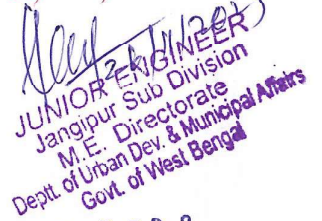 JUNIOR ENGINEER
Jangipur Sub Division
M.E. Directorate
Deptt. of Urban Dev. & Municipal Affairs
Govt. of West Bengal